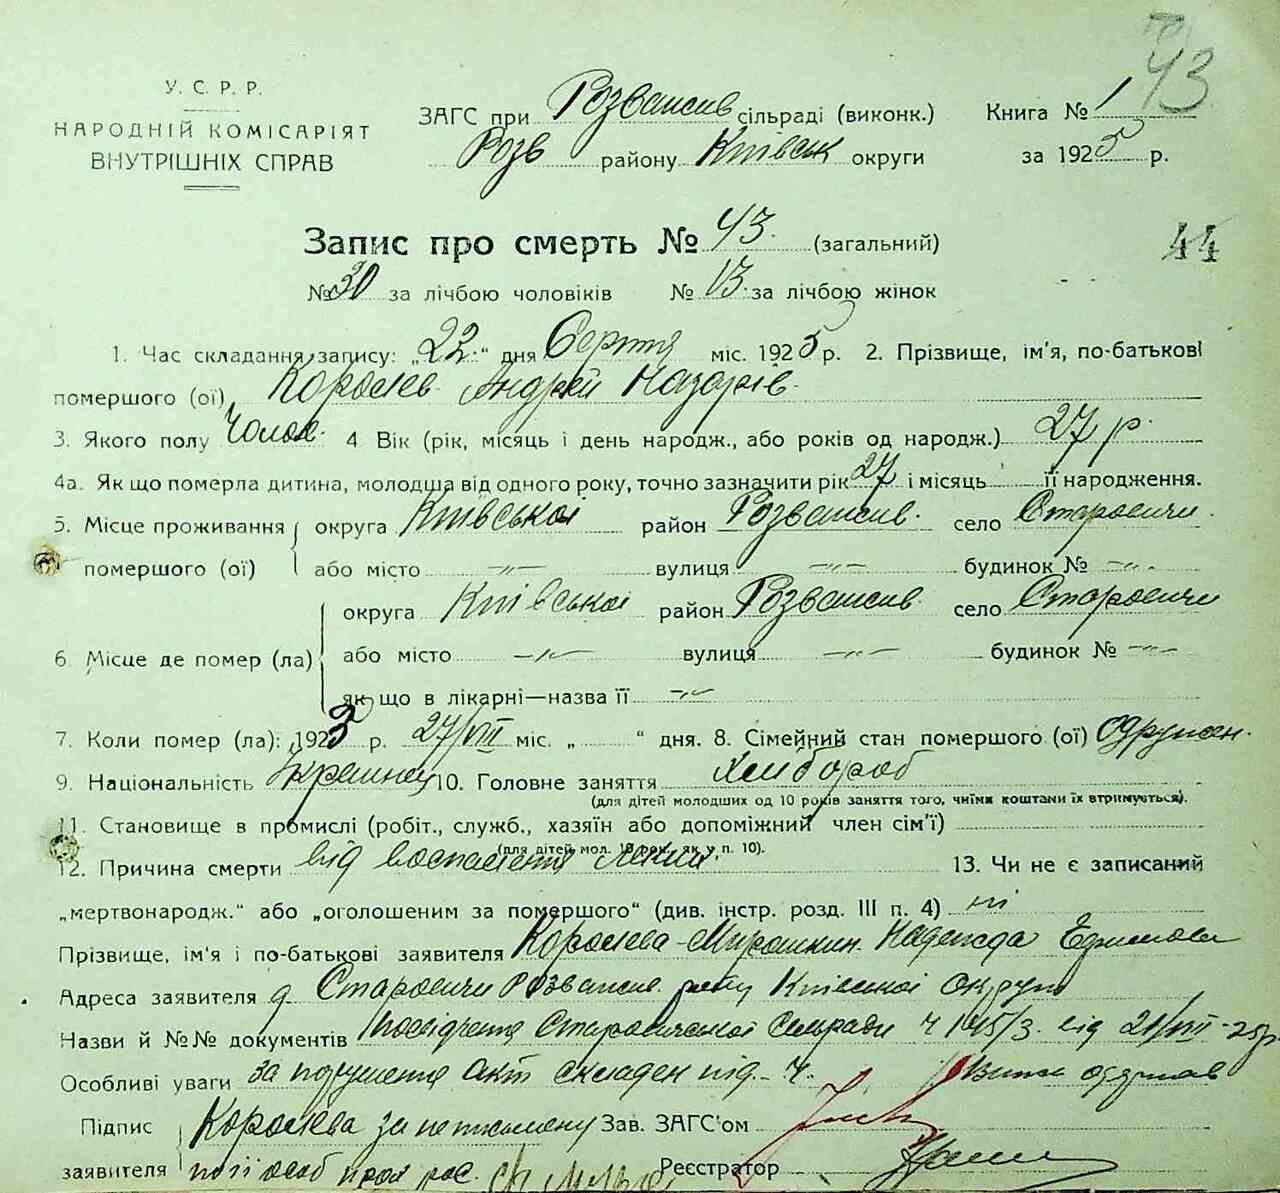 43
У. С. Р. Р.
НАРОДНІЙ КОМІСАРІЯТ
ВНУТРІШНІХ СПРАВ
ЗАГС при Розважив сільраді (виконк.) Книга № 1
Розв району Київськ округи за 1925 р.
Запис про смерть № 43. (загальний)
44
№ 30 за лічбою чоловіків № 13. за лічбою жінок
1. Час складання запису: „22." дня Серпня міс. 1925 р. 2. Прізвище, ім'я, по-батькові
помершого (ої) Королев Андрій Назарів.
3. Якого полу Чолов. 4. Вік (рік, місяць і день народж., або років од народж.) 27 р.
4а. Як що померла дитина, молодша від одного року, точно зазначити рік 27 і місяць її народження.
5. Місце проживання округа Київської район Розважив. село Старовичи.
помершого (ої) або місто -„- вулиця -„- будинок № -„-
округа Київської район Розважив. село Старовичи
6. Місце де помер (ла) або місто -„- вулиця -„- будинок № -„-
як що в лікарні—назва її -„-
7. Коли помер (ла): 1925 р. 27/VII міс. „ " дня. 8. Сімейний стан помершого (ої) одружен.
9. Національність 10. Головне заняття Хлібороб
(для дітей молодших од 10 років заняття того, чиїми коштами їх втримується).
11. Становище в промислі (робіт., служб., хазяїн або допоміжний член сім'ї)
(для дітей мол. 10 рок., як у п. 10).
12. Причина смерти від воспаления легких. 13. Чи не є записаний
„мертвонародж." або „оголошеним за помершого" (див. інстр. розд. III п. 4) ні
Прізвище, ім'я і по-батькові заявителя Королева Надежда
Адреса заявителя д. Старовичи Розважив. Київської округи
Назви й №№ документів посвідчення Старовичської Сільради ч 145/3. від 21/VIII-25р.
Особливі уваги за порушення акт складен під. ч.
Підпис Королева за неписьмену Зав. ЗАГС'ом
заявителя Реєстратор